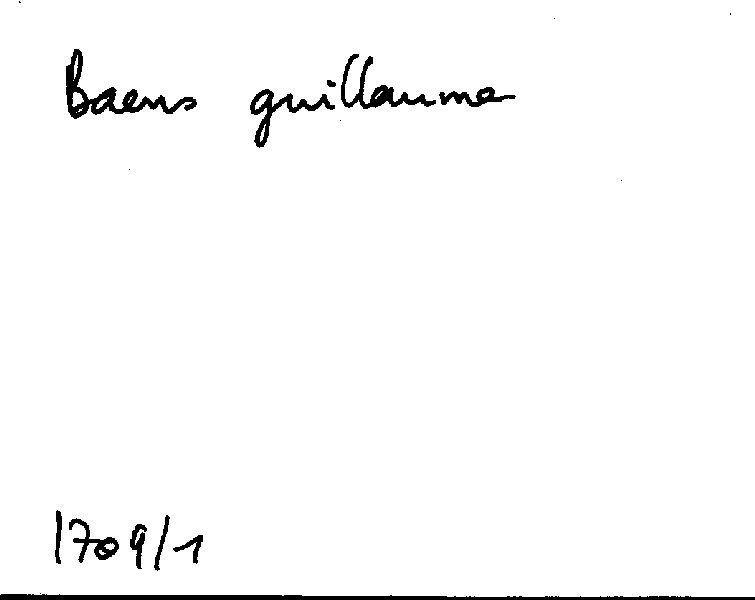 Baens guillaume
1709/1